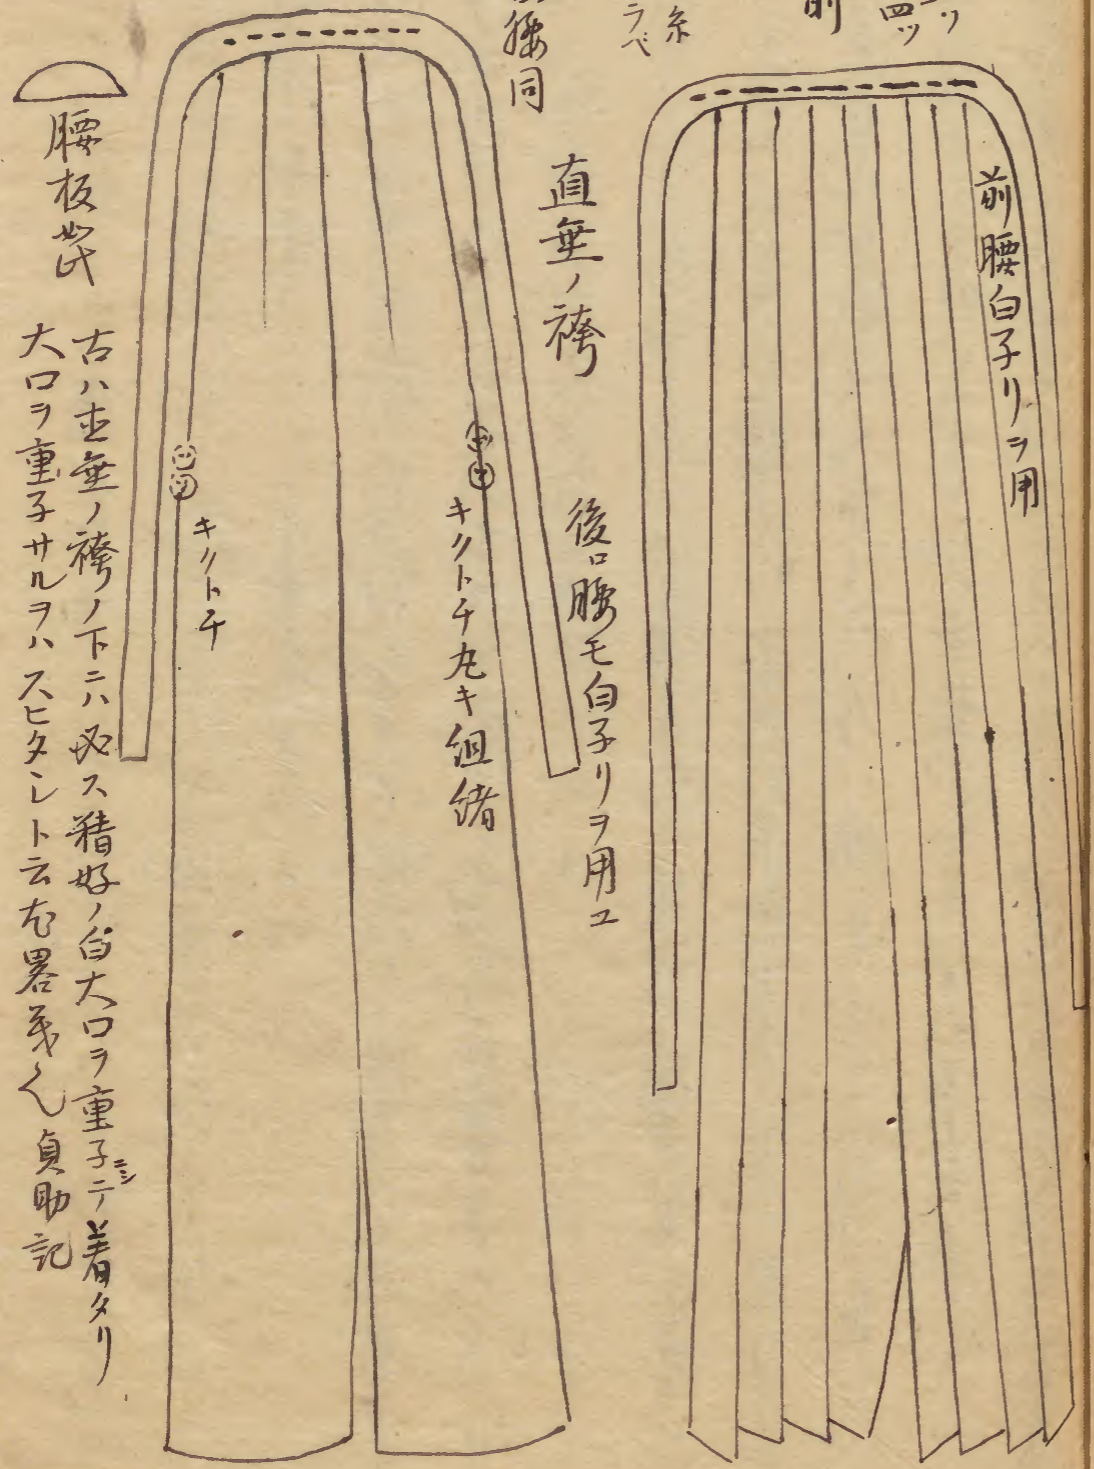 四ツ
前
糸
ラベ
腰同
前腰白子リヲ用
直垂ノ袴
後ロ腰モ白子リヲ用ユ
キクトチ丸キ組緒
キクトチ
腰板如此
古ハ直垂ノ袴ノ下ニハ必ス精好ノ白大口ヲ重子テ着タリ
大口ヲ重子サルヲハスヒタレト云尤畧義也 貞助記